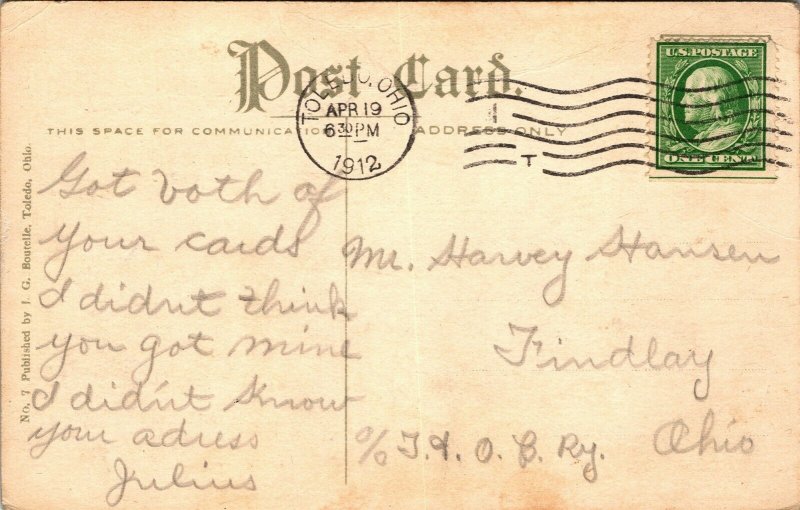 Post Card.
THIS SPACE FOR COMMUNICATION
ADDRESS ONLY
TOLEDO, OHIO
APR 19
6 30 PM
1912
1
T
U.S. POSTAGE
ONE CENT
No. 7 Published by J. G. Boutelle, Toledo, Ohio.
Got both of
your cards
I didn't think
you got mine
I didn't know
your adress
Julius
Mr. Harvey Hansen
Findlay
Ohio
c/o T. & O. C. Ry.